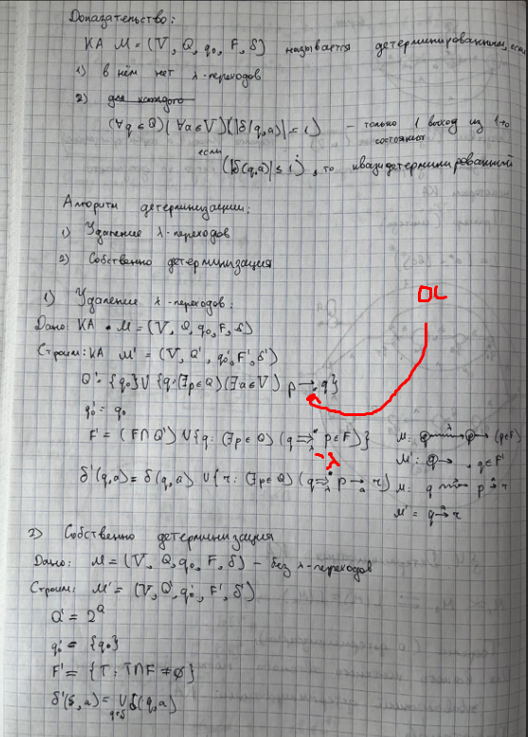 Доказательство:
КА M = (V, Q, q₀, F, δ) называется детерминированным, если
1) в нём нет λ-переходов
2) для каждого
(∀q ∈ Q)(∀a ∈ V)(|δ(q,a)| = 1) – только 1 выход из 1-го состояния
если (|δ(q,a)| ≤ 1), то квазидетерминированный
Алгоритм детерминизации:
1) Удаление λ-переходов
2) Собственно детерминизация
1) Удаление λ-переходов:
OL
Дано: КА M = (V, Q, q₀, F, δ)
Строим: КА M' = (V, Q', q₀', F', δ')
Q' = {q₀} ∪ {q: (∃p ∈ Q)(∃a ∈ V) p → q}
q₀' = q₀
F' = (F ∩ Q') ∪ {q: (∃p ∈ Q)(q ⇒*λ p ∈ F)}
- λ
δ'(q,a) = δ(q,a) ∪ {r: (∃p ∈ Q)(q ⇒*λ p →a r)}
M: λ (q∈F)
M': q∈F'
M: q p → r
M' = q → r
2) Собственно детерминизация
Дано: M = (V, Q, q₀, F, δ) – без λ-переходов
Строим: M' = (V, Q', q₀', F', δ')
Q' = 2^Q
q₀' = {q₀}
F' = {T: T∩F ≠ ∅}
δ'(S, a) = ∪ q∈S δ(q,a)